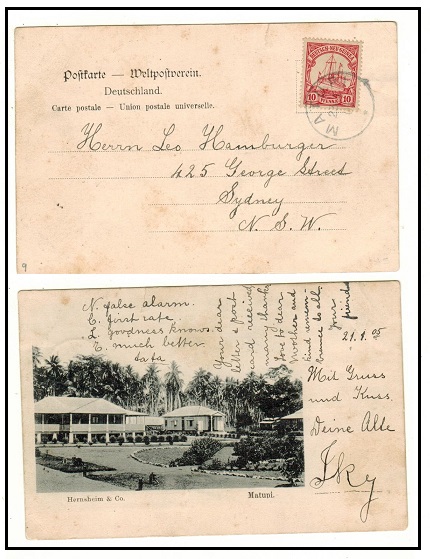 Postkarte — Weltpostverein.
Deutschland.
Carte postale — Union postale universelle.
DEUTSCH-NEU-GUINEA
10 10
MA
Herrn Leo Hamburger
425 George Street
Sydney
N. S. W.
9
N. false alarm.
C. first rate.
L. goodness knows.
T. much better
data
Your dear
letter & post
card received
many thanks
Love to dear
Mother and
kind remem-
brance to all.
Your
friend
21.1.05
Mit Gruss
und Kuss
Deine Alte
Iky
Hernsheim & Co.
Matupi.